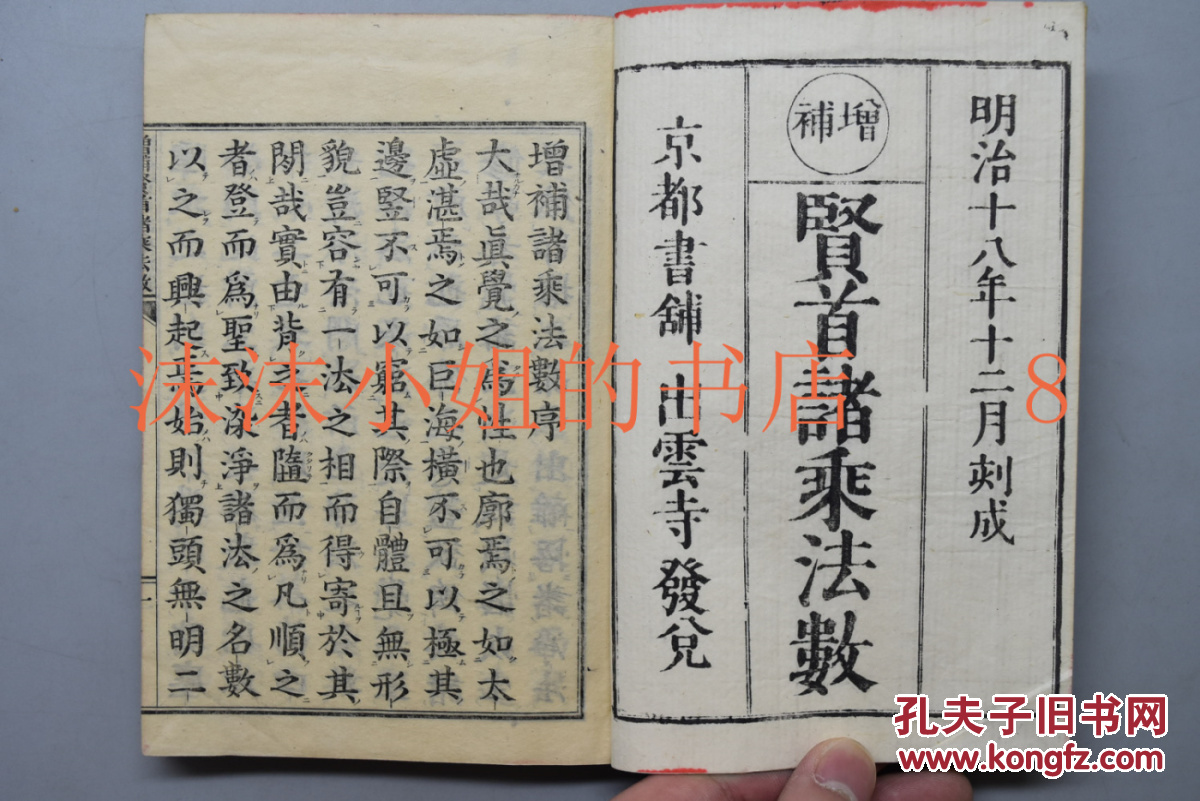 明治十八年十二月刻成
增補
賢首諸乘法數
京都書舗 出雲寺發兌
增補諸乘法數序
大哉眞覺之爲性也廓焉之如太
虛湛焉之如巨海橫不可以極其
邊竪不可以窮其際自體且無形
貌豈容有一法之相而得寄於其
閒哉實由背之者隨而爲凡順之
者登而爲聖致染淨諸法之名數
以之而興起焉始則獨頭無明二
沫沫小姐的书店 8
孔夫子旧书网